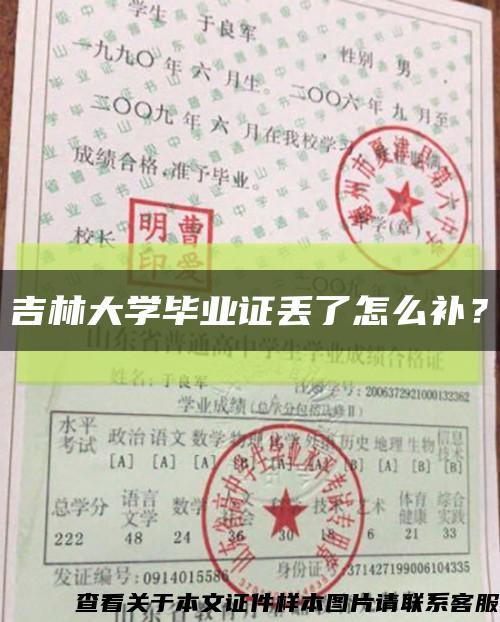 学生 于良军 ，性别 男 ，
一九九〇 年 六 月生。二〇〇六 年 九 月至
二〇〇九 年 六 月在我校学习
成绩合格，准予毕业。
校长
曹爱明印
夏津县第六中学
学(章)
吉林大学毕业证丢了怎么补？
山东省普通高中学生学业成绩合格证
姓名：于良军 学号：2006372921000132362
学业成绩（总学分包括必修Ⅱ）
水平考试 政治 语文 数学 物理 化学 外语 历史 地理 生物 信息技术
[A] [A] [A] [B] [A] [B] [B]
总学分 语言文学 数学 技术 艺术 体育健康 综合实践
222 48 24 36 30 18 6 21 33
发证编号：0914015586 身份证号：371427199006104335
查看关于本文证件样本图片请联系客服